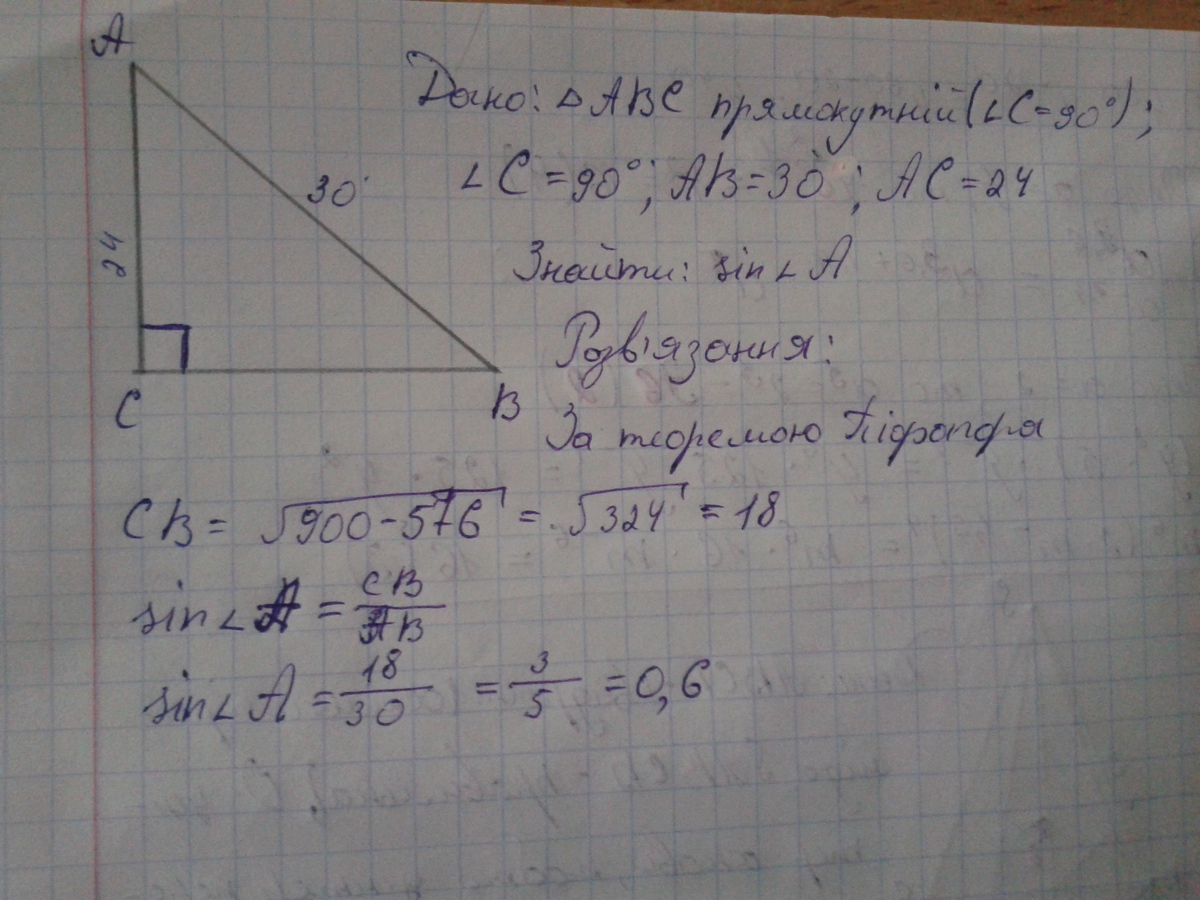 A
Дано: △ABC прямокутній (∠C=90°);
30
∠C=90°; AB=30; AC=24
24
Знайти: sin∠A
Розв'язання:
C
B
За теоремою Піфагора
CB = √900-576 = √324 = 18
sin∠A = CB/AB
sin∠A = 18/30 = 3/5 = 0,6